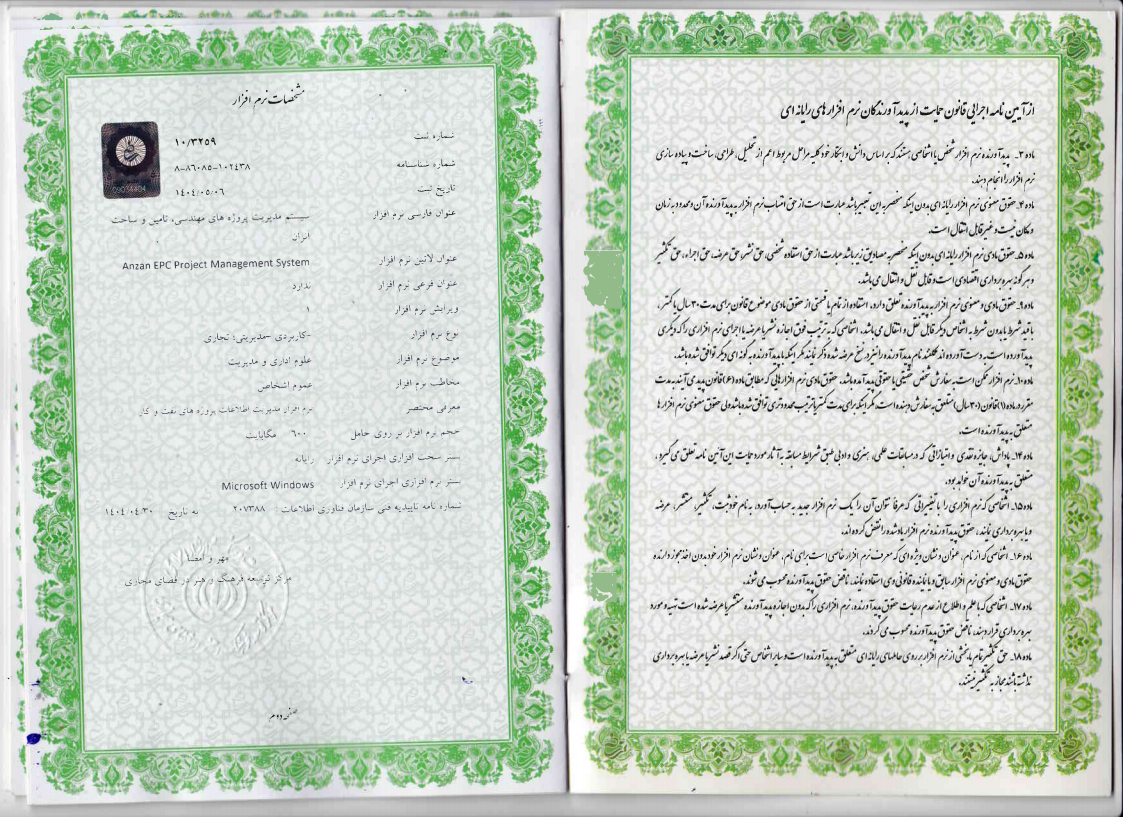 مشخصات نرم افزار
شماره ثبت ۱۰/۳۲۵۹
شماره شناسنامه ۸-۸۶۰۸۵-۱۰۲۴۳۸
تاریخ ثبت ۱۴۰۴/۰۵/۰۶
09034404
عنوان فارسی نرم افزار سیستم مدیریت پروژه های مهندسی، تامین و ساخت
انزان
عنوان لاتین نرم افزار Anzan EPC Project Management System
عنوان فرعی نرم افزار ندارد
ویرایش نرم افزار ۱
نوع نرم افزار -کاربردی -مدیریتی؛ تجاری
موضوع نرم افزار علوم اداری و مدیریت
مخاطب نرم افزار عموم اشخاص
معرفی مختصر نرم افزار مدیریت اطلاعات پروژه های نفت و گاز
حجم نرم افزار بر روی حامل ۶۰۰ مگابایت
بستر سخت افزاری اجرای نرم افزار رایانه
بستر نرم افزاری اجرای نرم افزار Microsoft Windows
شماره نامه تاییدیه فنی سازمان فناوری اطلاعات: ۲۰۷۳۸۸ به تاریخ ۱۴۰۴/۰۴/۳۰
مهر و امضا
مرکز توسعه فرهنگ و هنر در فضای مجازی
صفحه دوم
از آیین نامه اجرایی قانون حمایت از پدیدآورندگان نرم افزارهای رایانه ای
ماده ۲ـ پدیدآورنده نرم افزار شخص یا اشخاصی هستند که بر اساس دانش و ابتکار خود کلیه مراحل مربوط اعم از تحلیل، طراحی، ساخت و پیاده سازی
نرم افزار را انجام دهند.
ماده ۴ـ حقوق معنوی نرم افزار رایانه ای بدون اینکه منحصر به این تعبیر باشد عبارت است از حق انتساب نرم افزار به پدیدآورنده آن و محدود به زمان
و مکان نیست و غیرقابل انتقال است.
ماده ۵ـ حقوق مادی نرم افزار رایانه ای بدون اینکه منحصر به مصادیق زیر باشد عبارت است از حق استفاده شخصی، حق نشر، حق عرضه، حق اجراء، حق تکثیر
و هرگونه بهره برداری اقتصادی است و قابل نقل و انتقال می باشد.
ماده ۹ـ حقوق مادی و معنوی نرم افزار به پدیدآورنده تعلق دارد، استفاده از تمام یا قسمتی از حقوق مادی موضوع قانون برای مدت ۳۰ سال یا کمتر،
با قید شرط یا بدون شرط به اشخاص دیگر قابل نقل و انتقال می باشد. اشخاصی که به ترتیب فوق اجازه نشر یا عرضه یا اجرای نرم افزاری را که دیگری
پدیدآورده است به دست آورده اند مکلفند نام پدیدآورنده را نیز در نسخ عرضه شده ذکر نمایند مگر اینکه با پدیدآورنده به گونه ای دیگر توافق شده باشد.
ماده ۱۰ـ نرم افزار ممکن است به سفارش شخص حقیقی یا حقوقی پدید آمده باشد. حقوق مادی نرم افزارهایی که مطابق ماده (۶) قانون پدید می آیند به مدت
مقرر در ماده (۱) قانون (۳۰ سال) متعلق به سفارش دهنده است، مگر اینکه برای مدت کمتر یا ترتیب محدودتری توافق شده باشد ولی حقوق معنوی نرم افزارها
متعلق به پدیدآورنده است.
ماده ۱۴ـ پاداش، جایزه نقدی و امتیازاتی که در مسابقات علمی، هنری و ادبی طبق شرایط مسابقه به آثار مورد حمایت این آئین نامه تعلق می گیرد،
متعلق به پدیدآورنده آن خواهد بود.
ماده ۱۵ـ اشخاصی که نرم افزاری را با تغییراتی که عرفا نتوان آن را یک نرم افزار جدید به حساب آورد، به نام خود ثبت، تکثیر، منتشر، عرضه
و یا بهره برداری نمایند، حقوق پدیدآورنده نرم افزار یادشده را نقض کرده اند.
ماده ۱۶ـ اشخاصی که از نام، عنوان و نشان ویژه ای که معرف نرم افزار خاصی است برای نام، عنوان و نشان نرم افزار خود بدون اخذ مجوز دارنده
حقوق مادی و معنوی نرم افزار سابق و یا نماینده قانونی وی استفاده نمایند، ناقض حقوق پدیدآورنده محسوب می شوند.
ماده ۱۷ـ اشخاصی که با علم و اطلاع از عدم رعایت حقوق پدیدآورنده، نرم افزاری را که بدون اجازه پدیدآورنده منتشر یا عرضه شده است تهیه و مورد
بهره برداری قرار دهند، ناقض حقوق پدیدآورنده محسوب می گردند.
ماده ۱۸ـ حق تکثیر تمام یا بخشی از نرم افزار بر روی حاملهای رایانه ای متعلق به پدیدآورنده است و سایر اشخاص حتی اگر قصد نشر یا عرضه یا بهره برداری
نداشته باشند مجاز به تکثیر نیستند.